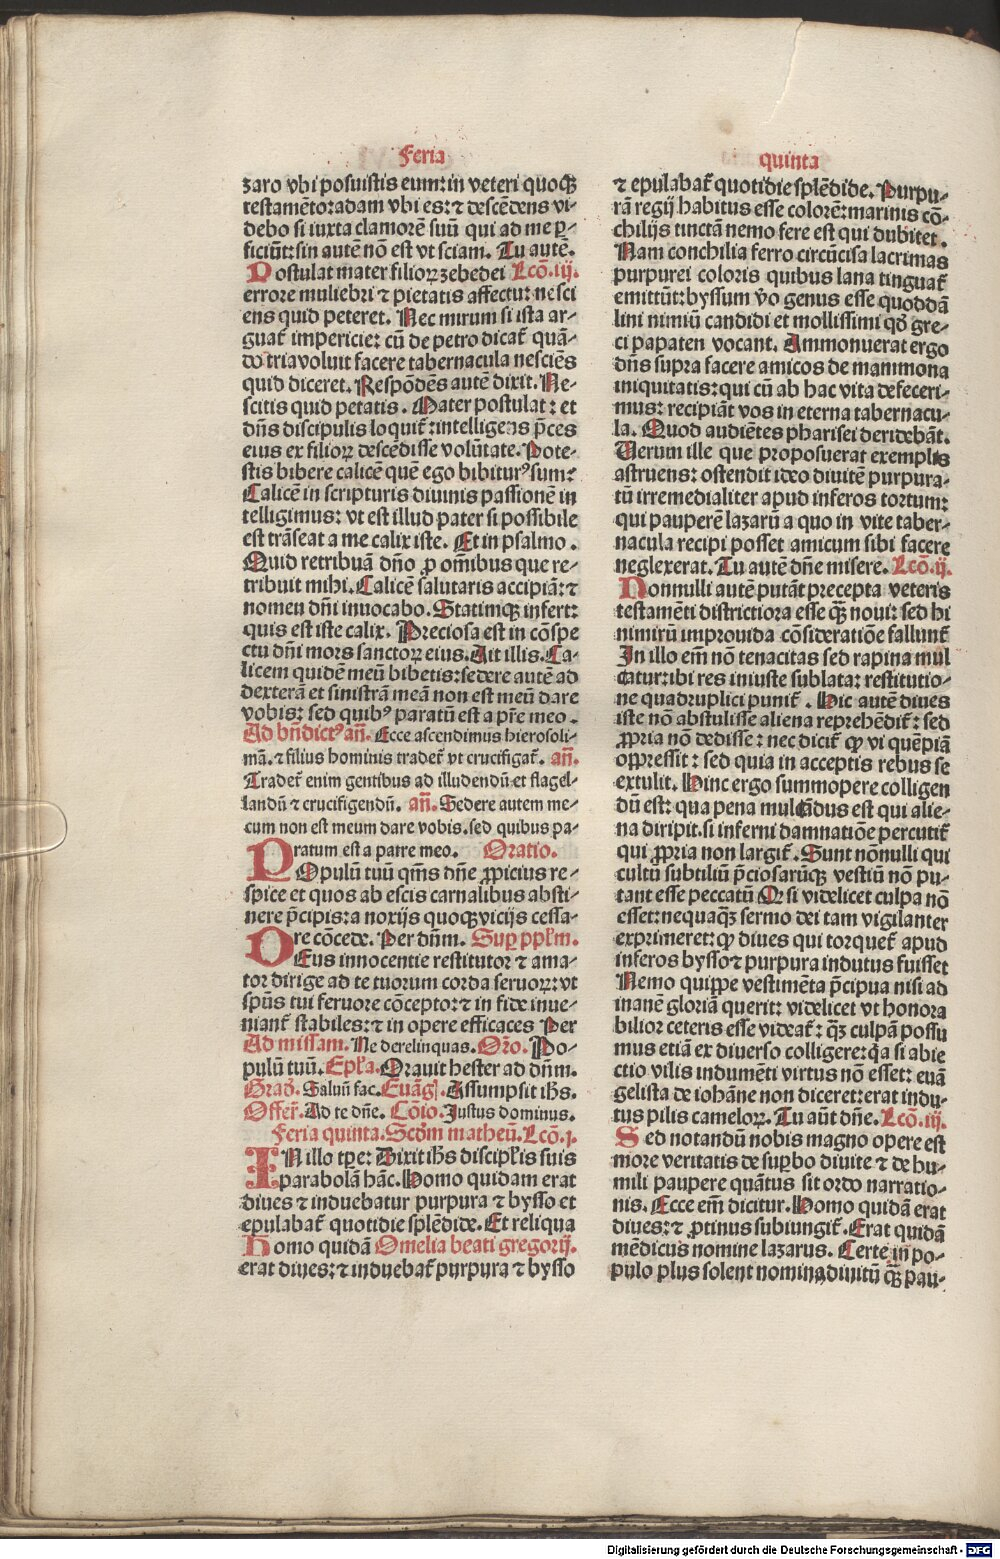 Feria
zaro vbi posuistis eum: in veteri quoqꝫ
testamēto: adam vbi es: ⁊ descēdens vi⸗
debo si iuxta clamorē suū qui ad me ꝑ⸗
ficiūt: sin autē nō est vt sciam. Tu autē.
Postulat mater filioꝝ zebedei Lcō. iij.
errore muliebri ⁊ pietatis affectu: nesci
ens quid peteret. Nec mirum si ista ar⸗
guat᷑ impericie: cū de petro dicat᷑ quā⸗
do tria voluit facere tabernacula nesciēs
quid diceret. Respōdēs autē dixit. Ne⸗
scitis quid petatis. Mater postulat: et
dn̄s discipulis loquit᷑: intelligens p̄ces
eius ex filioꝝ descēdisse volūtate. Pote⸗
stis bibere calicē quē ego bibiturꝰ sum:
Calicē in scripturis diuinis passionē in
telligimus: vt est illud pater si possibile
est trāseat a me calix iste. Et in psalmo.
Quid retribuā dn̄o ꝓ om̄ibus que re⸗
tribuit mihi. Calicē salutaris accipiā: ⁊
nomen dn̄i inuocabo. Statimqꝫ infert:
quis est iste calix. Preciosa est in cōspe
ctu dn̄i mors sanctoꝝ eius. Ait illis. Ca⸗
licem quidē meū bibetis: sedere autē ad
dexterā et sinistrā meā non est meū dare
vobis: sed quibꝰ paratū est a pr̄e meo.
Ad bn̄dictꝰ an̄. Ecce ascendimus hierosoli⸗
mā. ⁊ filius hominis tradet᷑ vt crucifigat᷑. an̄.
Tradet᷑ enim gentibus ad illudendū et flagel⸗
landū ⁊ crucifigendū. an̄. Sedere autem me⸗
cum non est meum dare vobis. sed quibus pa⸗
ratum est a patre meo. Oratio.
POpulū tuū qm̄s dn̄e ꝓpicius re⸗
spice et quos ab escis carnalibus absti⸗
nere p̄cipis: a noxijs quoqꝫ vicijs cessa⸗
re cōcede. Per dn̄m. Suꝑ ppl̄m.
DEus innocentie restitutor ⁊ ama⸗
tor dirige ad te tuorum corda seruoꝝ: vt
spūs tui feruore cōcepto: ⁊ in fide inue⸗
niant᷑ stabiles: ⁊ in opere efficaces Per
Ad missam. Ne derelinquas. Or̄o. Po⸗
pulū tuū. Epl̄a. Orauit hester ad dn̄m.
Grad̄. Saluū fac. Euāgl̄. Assumpsit ih̄s.
Offer̄. Ad te dn̄e. Cōio. Iustus dominus.
Feria quinta. Scd̄m matheū. Lcō. j.
IN illo tp̄e: Dixit ih̄s discipl̄is suis
parabolā hāc. Homo quidam erat
diues ⁊ induebatur purpura ⁊ bysso et
epulabat᷑ quotidie splēdide. Et reliqua
Homo quidā Omelia beati gregorij.
erat diues: ⁊ induebat᷑ purpura ⁊ bysso
quinta
⁊ epulabat᷑ quotidie splēdide. Purpu⸗
rā regij habitus esse colorē: marinis cō⸗
chilijs tinctā nemo fere est qui dubitet.
Nam conchilia ferro circūcisa lacrimas
purpurei coloris quibus lana tinguat᷑
emittūt: byssum v̄o genus esse quoddā
lini nimiū candidi et mollissimi qd̄ gre⸗
ci papaten vocant. Ammonuerat ergo
dn̄s supra facere amicos de mammona
iniquitatis: qui cū ab hac vita defeceri⸗
mus: recipiāt vos in eterna tabernacu⸗
la. Quod audiētes pharisei deridebāt.
Verum ille que proposuerat exemplis
astruens: ostendit ideo diuitē purpura⸗
tū irremedialiter apud inferos tortum:
qui pauperē lazarū a quo in vite taber⸗
nacula recipi posset amicum sibi facere
neglexerat. Tu autē dn̄e misere. Lcō. ij.
Nonnulli autē putāt precepta veteris
testamēti districtiora esse qꝫ̄ noui: sed hi
nimirū improuida cōsideratiōe fallunt᷑
In illo em̄ nō tenacitas sed rapina mul
ctatur: ibi res iniuste sublata: restitutio⸗
ne quadruplici punit᷑. Hic autē diues
iste nō abstulisse aliena reprehēdit᷑: sed
ꝓpria nō dedisse: nec dicit᷑ ꝙ vi quēpiā
oppressit: sed quia in acceptis rebus se
extulit. Hinc ergo summopere colligen
dū est: qua pena mulctādus est qui alie⸗
na diripit. si inferni damnatiōe percutit᷑
qui ꝓpria non largit᷑. Sunt nōnulli qui
cultū subtiliū p̄ciosarūqꝫ vestiū nō pu⸗
tant esse peccatū Qꝫ si videlicet culpa nō
esset: nequaqꝫ̄ sermo dei tam vigilanter
exprimeret: ꝙ diues qui torquet᷑ apud
inferos bysso ⁊ purpura indutus fuisset
Nemo quippe vestimēta p̄cipua nisi ad
inanē gloriā querit: videlicet vt honora
bilior ceteris esse videat᷑: qꝫ culpā possu
mus etiā ex diuerso colligere: q̄a si abie
ctio vilis indumēti virtus nō esset: euā
gelista de iohāne non diceret: erat indu⸗
tus pilis cameloꝝ. Tu aūt dn̄e. Lcō. iij.
Sed notandū nobis magno opere est
more veritatis de suꝑbo diuite ⁊ de hu⸗
mili paupere quātus sit ordo narratio⸗
nis. Ecce em̄ dicitur. Homo quidā erat
diues: ⁊ ꝓtinus subiungit᷑. Erat quidā
mēdicus nomine lazarus. Certe in po⸗
pulo plus solent nomina diuitū qꝫ̄ pau⸗
Digitalisierung gefördert durch die Deutsche Forschungsgemeinschaft - DFG